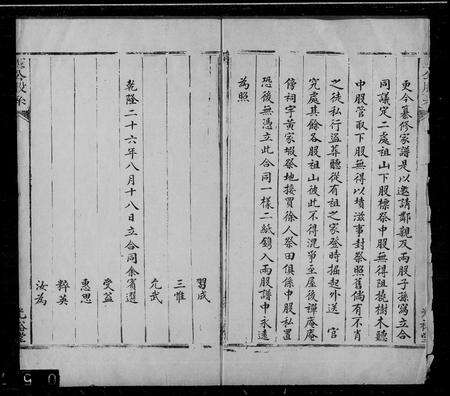 更今纂修家譜是以邀請鄰親及兩股子孫寫立合
同議定二處祖山下股標祭中股無得阻撓樹木聽
中股管取下股無得以墳滋事封祭照舊倘有不肖
之徒私行盜葬聽從有祖之家登時掘起外送 官
究處其餘各股祖山彼此不得混爭至屋後禪庵庵
傍祠宇黃家塅祭地接買徐人祭田俱係中股私置
恐後無憑立此合同一樣二紙鐫入兩股譜中永遠
為照
乾隆二十六年八月十八日立合同余賓選
習成
三惟
允武
受益
惠思
粹英
汝為